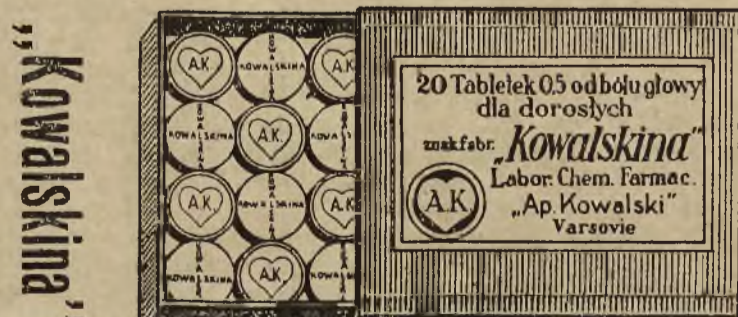 „Kowalskina”
A.K.
KOWALSKINA
A.K.
KOWALSKINA
A.K.
A.K.
KOWALSKINA
A.K.
KOWALSKINA
A.K.
20 Tabletek 0.5 od bólu głowy
dla dorosłych
znak fabr. „Kowalskina”
Labor. Chem. Farmac.
A.K. „Ap. Kowalski”
Varsovie